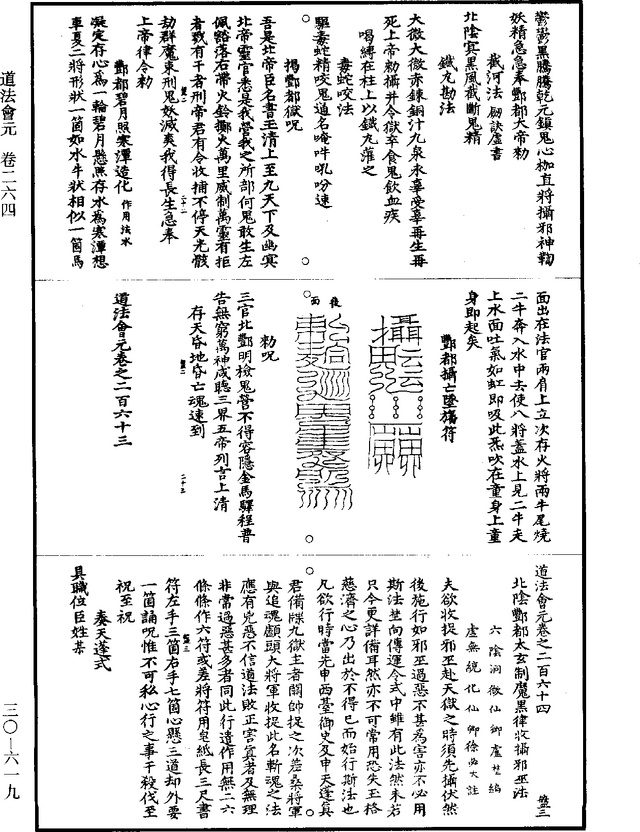 鬱鬱黑騰騰乾元鎮鬼心枷直將攝邪神鞫
妖精急急奉酆都大帝勑
截河法 劒訣虛書
北陰㝠黑風截斷鬼精
鐵丸勘法
大微大微赤鍊銅汁九泉永辜受辜再生再
死上帝勑攝并令獄卒食鬼飲血疾
唱縛在柱上以鐵丸灌之
毒蛇咬法
驅毒蛇精咬鬼通名唵吽吼吩速
揭酆都獄呪
吾是北帝臣名書玉清上至九天下及幽㝠
北帝靈官悉是我營我之所部何鬼敢生左
佩豁落右帶火鈴擲火萬里威制萬靈有拒
者戮有干者刑帝君有令收捕不停天光骸
劫群魔束刑鬼妖滅爽我得長生急奉
上帝律令勑
酆都碧月照寒潭造化 作用法水
凝定存心為一輪碧月懸照存水為寒潭想
車夏二將形狀一箇如水牛狀相似一箇馬
面出在法官兩肩上立次存火將兩牛尾燒
二牛奔入水中去使八將蓋水上見二牛走
上水面吐氣如虹即吸此炁吹在童身上童
身即起矣
酆都攝亡墜旛符
後面
勑呪
三官北酆明檢鬼營不得容隱金馬驛程普
告無窮萬神咸聽三界五帝列言上清
存天昏地昏亡魂速到
道法會元卷之二百六十三
道法會元卷之二百六十四
北陰酆都太玄制魔黑律收攝邪巫法
六陰洞微仙卿盧埜編
虛無統化仙卿徐必大註
夫欲收捉邪巫赴天獄之時須先攝伏然
後施行如邪巫過惡不甚為害亦不必用
斯法埜向傳運令式中雖有此法然未若
只今更詳備耳然亦不可常用恐失玉格
慈濟之心乃出於不得已而始行斯法也
凡欲行時當先申西臺御史及申天蓬真
君備牒九獄主者關帥捉之次差桑將軍
與追魂顱頭大將軍收捉此名斬魂之法
應有兇惡不信道法敗正害真者及無理
非常過惡甚多者同此行遣作用無二六
條條作六符或差將符用皂紙長三尺書
符左手三箇右手七箇心懸三道却外要
一箇誦呪惟不可私心行之事干殺伐至
祝至祝
奏天蓬式
具職位臣姓某
道法會元 卷二六四
三〇—六一九